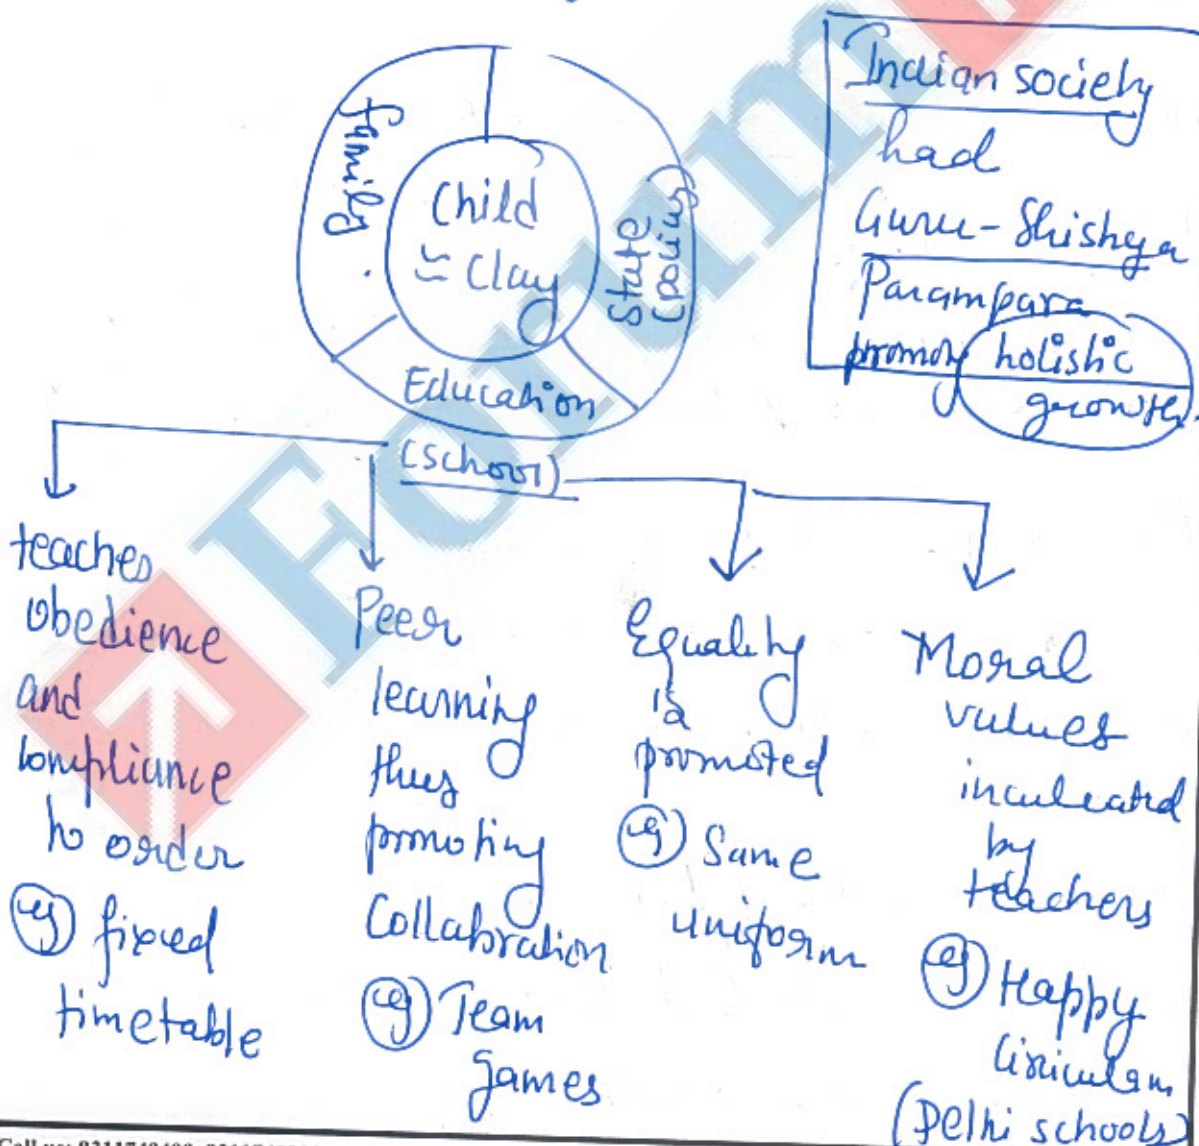 family
Child
≈ Clay
State
(policy)
Education
(school)
Indian society
had
Guru-Shishya
Parampara
promotg holistic
growth.
teaches
obedience
and
compliance
to order
eg fixed
timetable
Peer
learning
thus
promoting
Collabration
eg Team
games
Equality
is
promoted
eg Same
uniform
Moral
values
inculcated
by
teachers
eg Happy
Ciriculam
(Delhi schools)
Forum